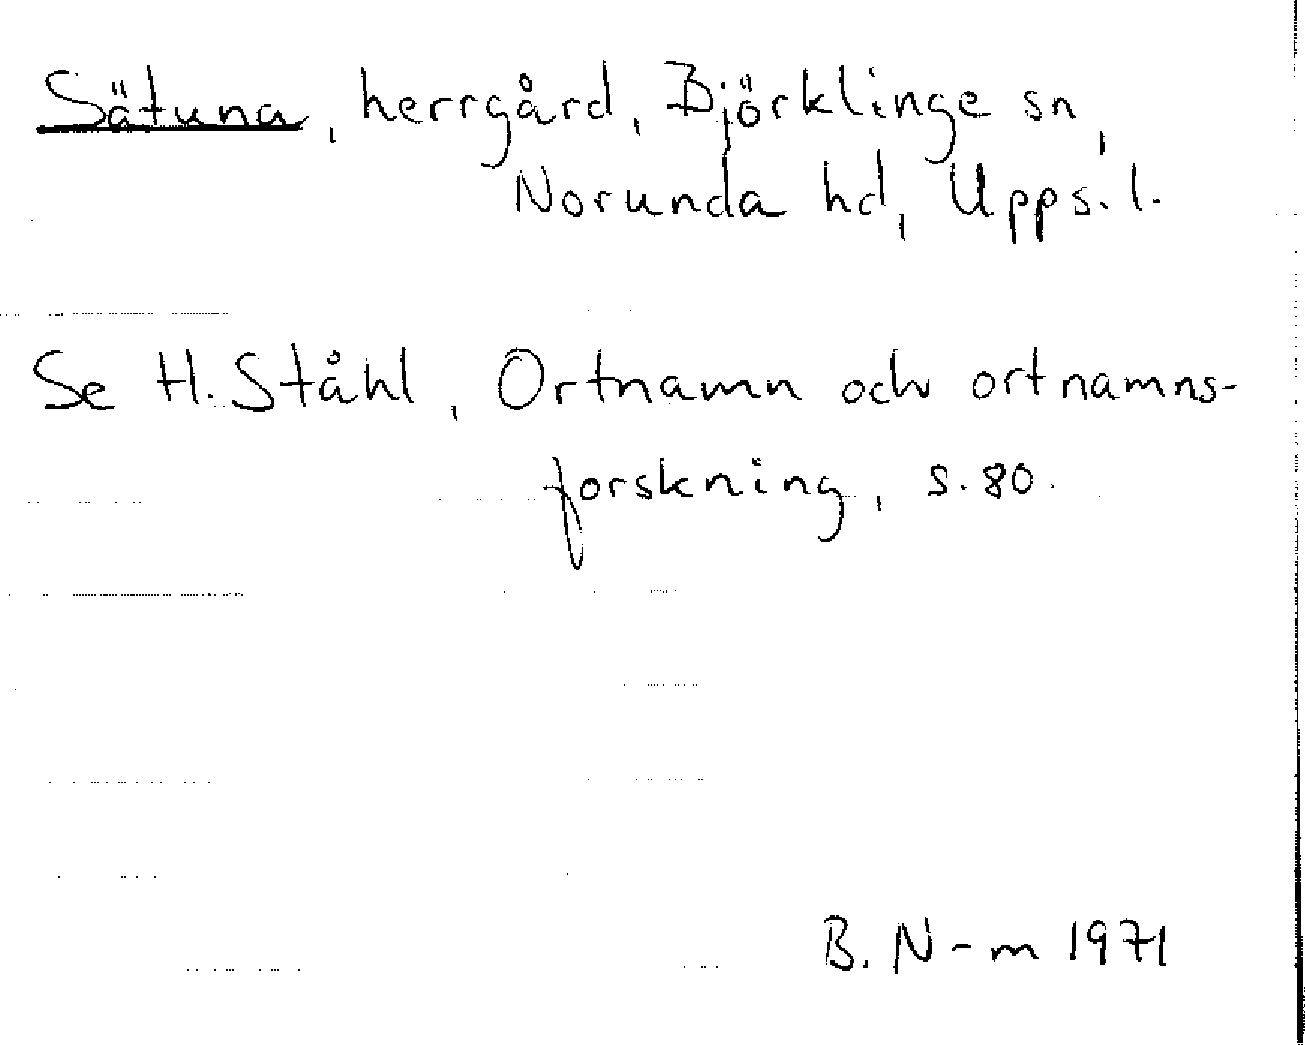 Sätuna, herrgård, Björklinge sn,
Norunda hd, Upps. l.
Se H. Ståhl, Ortnamn och ortnamns-
forskning, s. 80.
B. N-m 1971